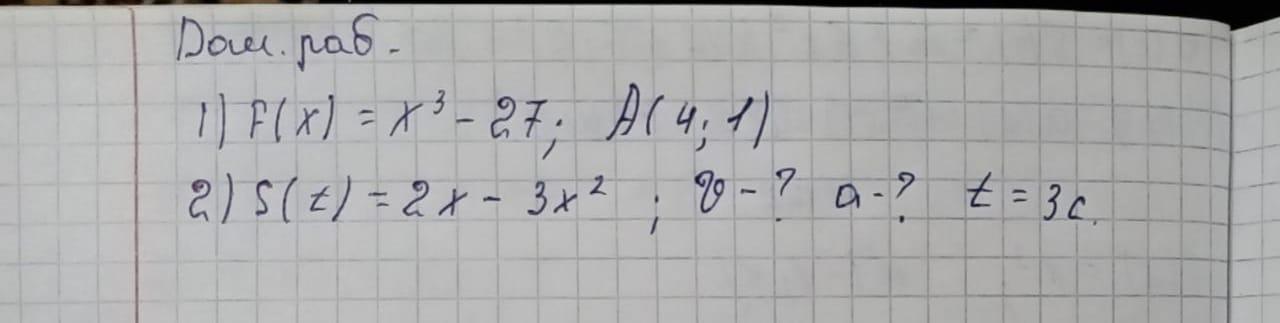 Дом. раб.
1) F(x) = x³ - 27; A(4; 1)
2) S(t) = 2x - 3x² ; υ - ? a - ? t = 3с.